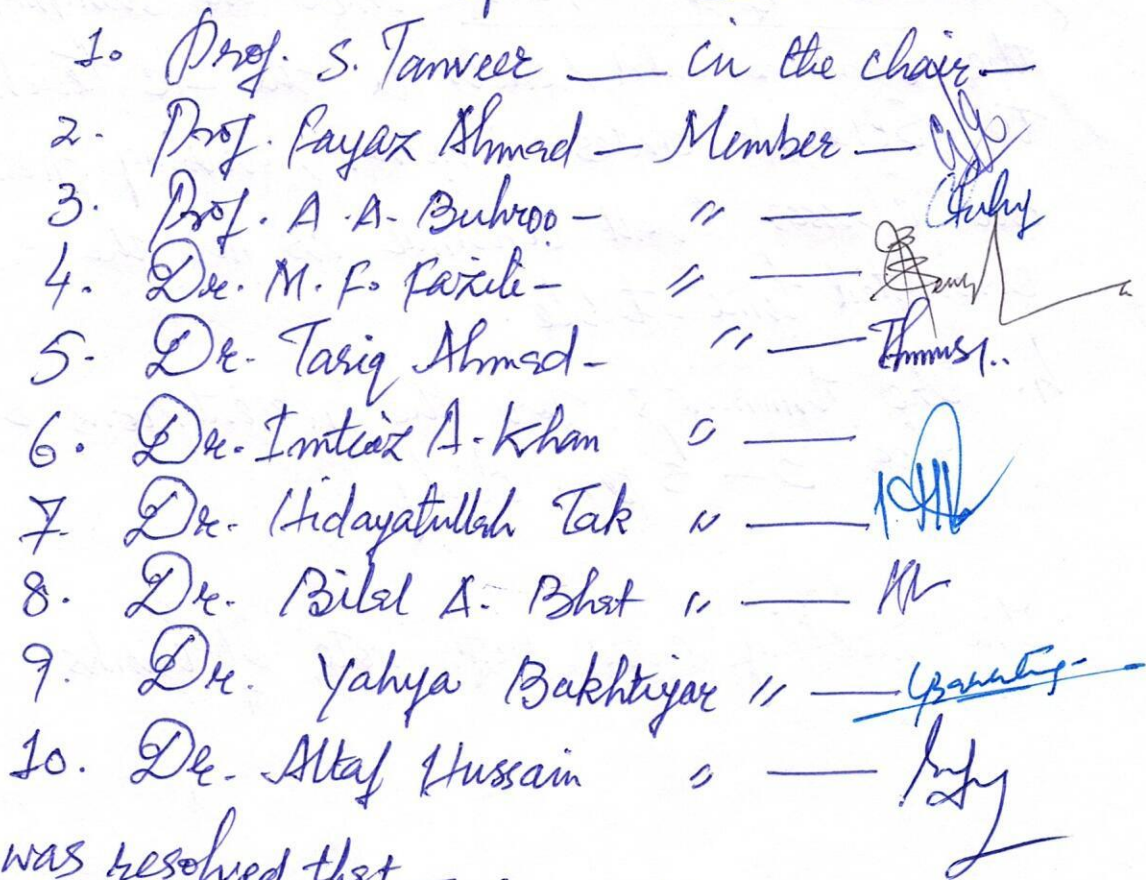 1. Prof. S. Tanveer — in the chair —
2. Prof. Fayaz Ahmad — Member —
3. Prof. A. A. Buhroo — " —
4. Dr. M. F. Fazili — " —
5. Dr. Tariq Ahmad — " —
6. Dr. Imtiaz A. Khan " —
7. Dr. Hidayatullah Tak " —
8. Dr. Bilal A. Bhat " —
9. Dr. Yahya Bakhtiyar " —
10. Dr. Altaf Hussain " —
was resolved that